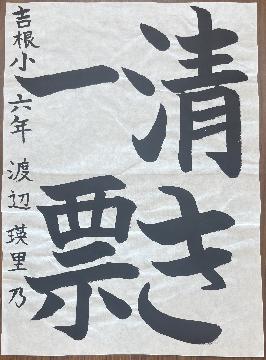 清き
一票
吉根小 六年 渡辺瑛里乃